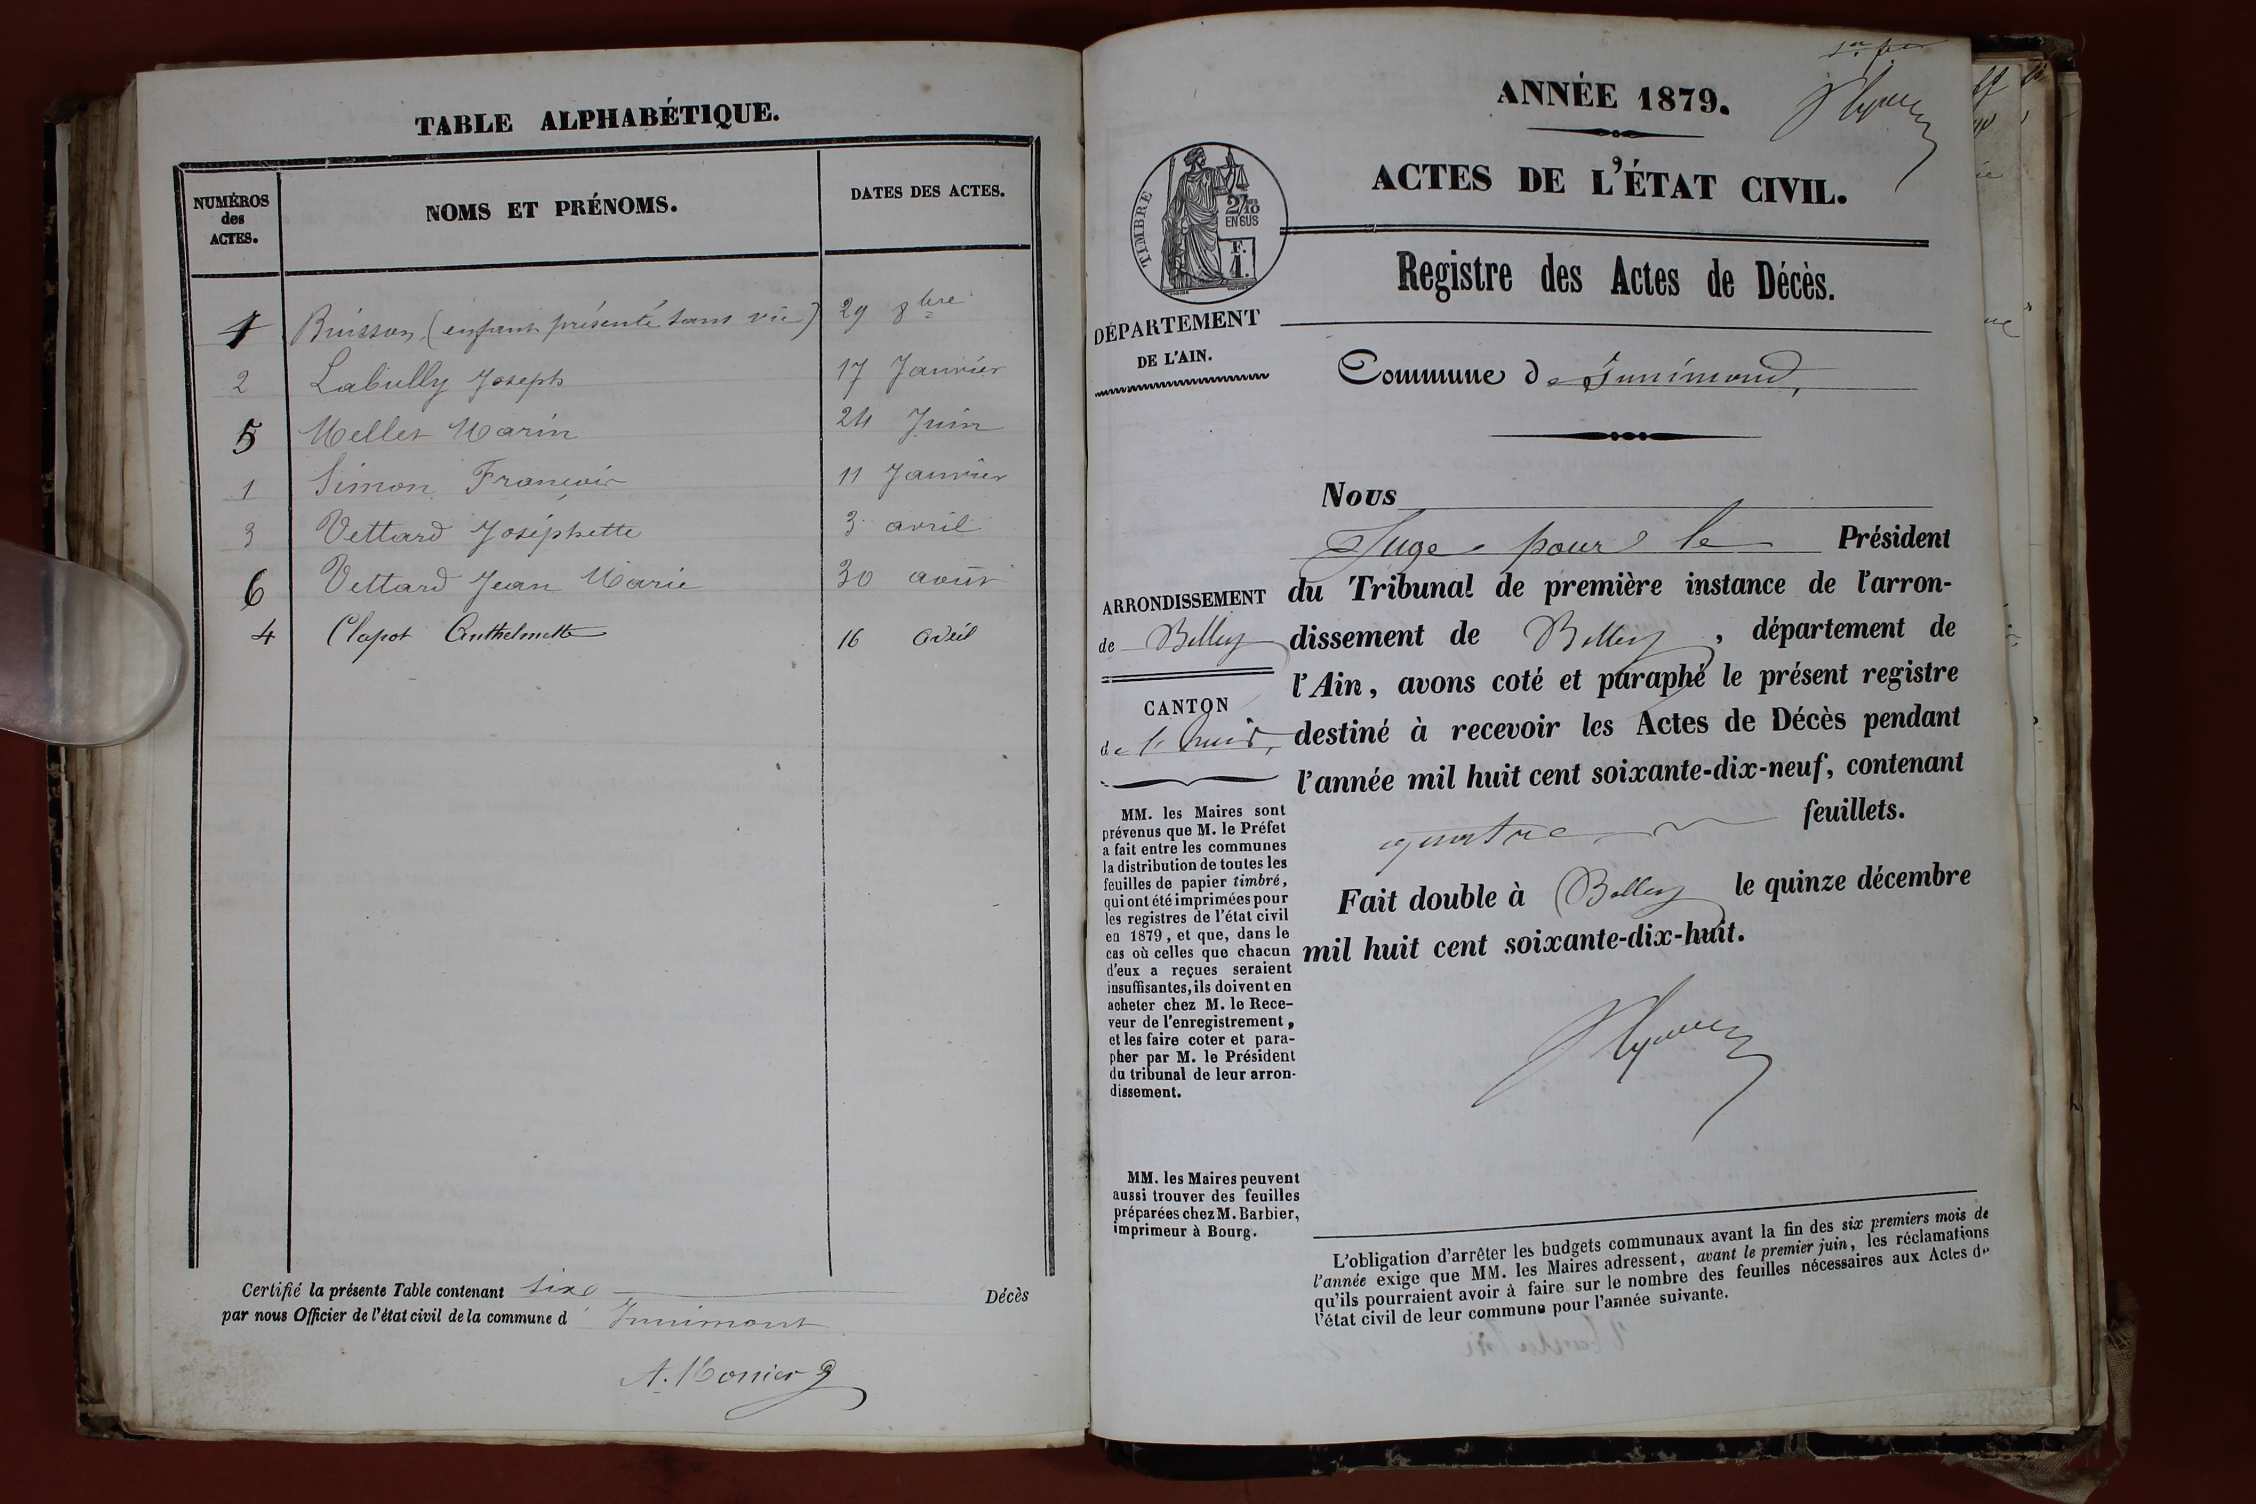 TABLE ALPHABÉTIQUE.
NUMÉROS
des
ACTES.
NOMS ET PRÉNOMS.
DATES DES ACTES.
Buisson (enfant présenté sans vie) 29 8bre
2 Labully Joseph 17 Janvier
5 Mellet Marin 24 Juin
1 Simon François 11 Janvier
3 Vettard Joséphette 3 avril
6 Vettard Jean Marie 30 août
4 Clapot Anthelmette 16 avril
Certifié la présente Table contenant six Décès
par nous Officier de l'état civil de la commune d' Innimont
A. Monier
ANNÉE 1879.
ACTES DE L'ÉTAT CIVIL.
TIMBRE
2/10
EN SUS
F.
1.
Registre des Actes de Décès.
DÉPARTEMENT
DE L'AIN.
Commune de Innimond,
Nous
Juge pour le Président
du Tribunal de première instance de l'arron-
dissement de Belley, département de
l'Ain, avons coté et paraphé le présent registre
destiné à recevoir les Actes de Décès pendant
l'année mil huit cent soixante-dix-neuf, contenant
quatre feuillets.
Fait double à Belley le quinze décembre
mil huit cent soixante-dix-huit.
ARRONDISSEMENT
de Belley
CANTON
de
MM. les Maires sont
prévenus que M. le Préfet
a fait entre les communes
la distribution de toutes les
feuilles de papier timbré,
qui ont été imprimées pour
les registres de l'état civil
en 1879, et que, dans le
cas où celles que chacun
d'eux a reçues seraient
insuffisantes, ils doivent en
acheter chez M. le Rece-
veur de l'enregistrement,
et les faire coter et para-
pher par M. le Président
du tribunal de leur arron-
dissement.
MM. les Maires peuvent
aussi trouver des feuilles
préparées chez M. Barbier,
imprimeur à Bourg.
L'obligation d'arrêter les budgets communaux avant la fin des six premiers mois de
l'année exige que MM. les Maires adressent, avant le premier juin, les réclamations
qu'ils pourraient avoir à faire sur le nombre des feuilles nécessaires aux Actes de
l'état civil de leur commune pour l'année suivante.